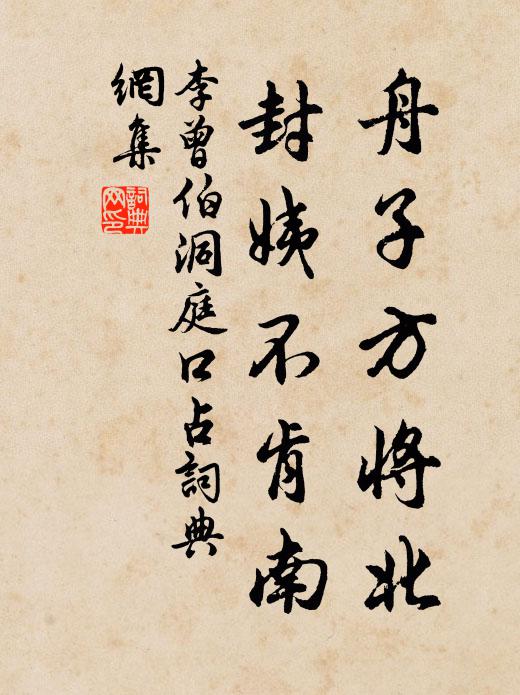 舟子方將北
封姨不肯南
李曾伯洞庭口占詞典
網集
詞典網印